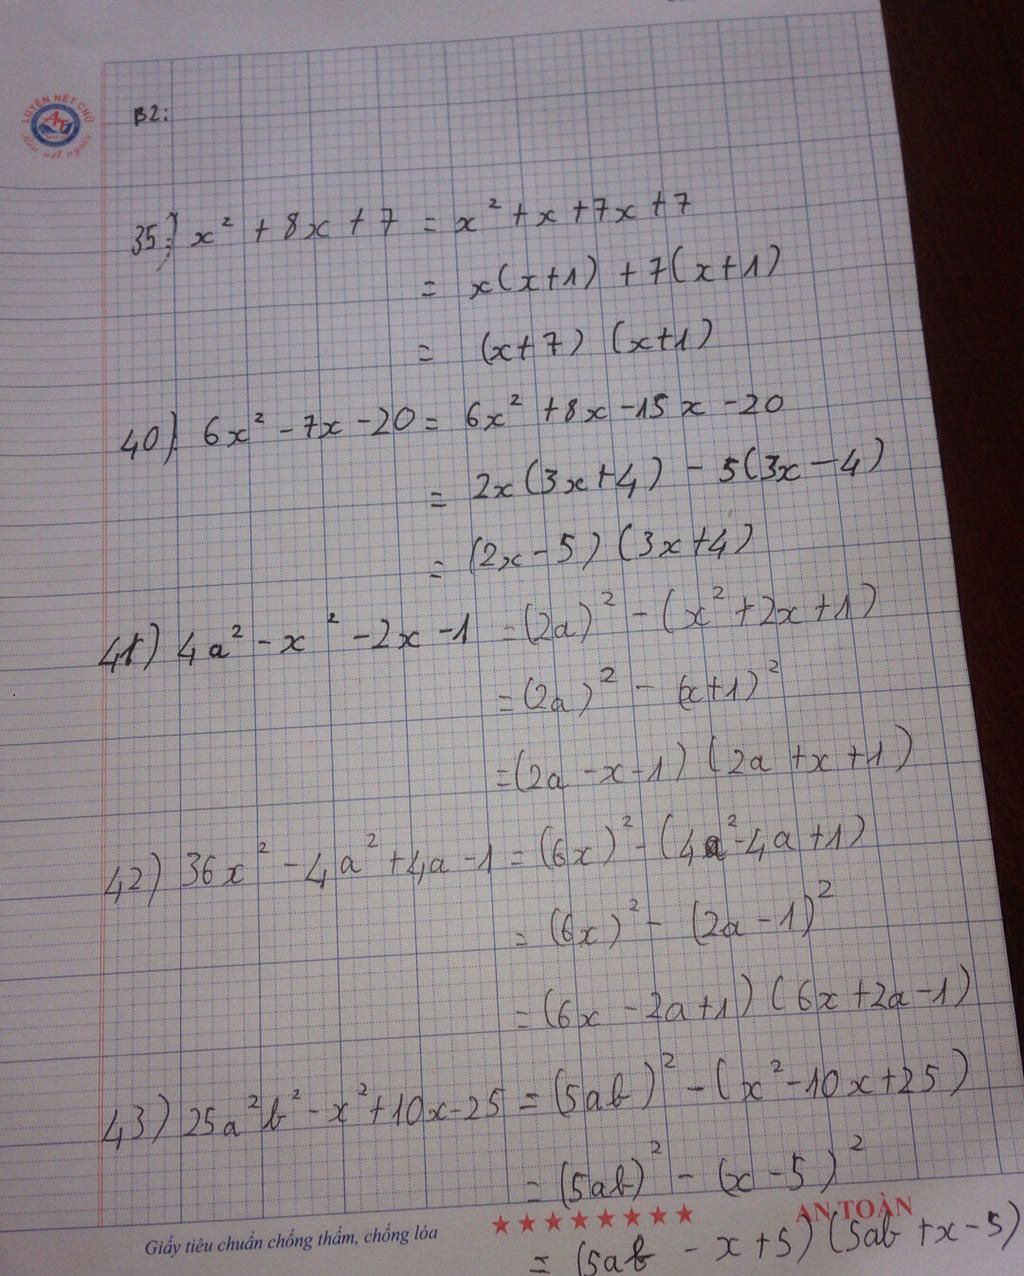 LUYỆN NÉT CHỮ
B2:
35) x² + 8x + 7 = x² + x + 7x + 7
= x(x+1) + 7(x+1)
= (x+7) (x+1)
40) 6x² - 7x - 20 = 6x² + 8x - 15x - 20
= 2x(3x+4) - 5(3x-4)
= (2x-5) (3x+4)
41) 4a² - x² - 2x - 1 = (2a)² - (x² + 2x + 1)
= (2a)² - (x+1)²
= (2a - x - 1) (2a + x + 1)
42) 36x² - 4a² + 4a - 1 = (6x)² - (4a² - 4a + 1)
= (6x)² - (2a - 1)²
= (6x - 2a + 1) (6x + 2a - 1)
43) 25a²b² - x² + 10x - 25 = (5ab)² - (x² - 10x + 25)
= (5ab)² - (x - 5)²
Giấy tiêu chuẩn chống thấm, chống lóa ★★★★★★★★ AN TOÀN
= (5ab - x + 5) (5ab + x - 5)